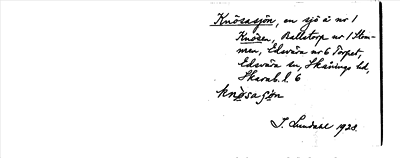 Knösasjön, en sjö å nr 1
Knösen, Ballstorp nr 1 Hem-
men, Edsvära nr 6 Torpet,
Edsvära sn, Skånings hd,
Skarab. l. 6
knösasjön
I. Lundahl 1928.